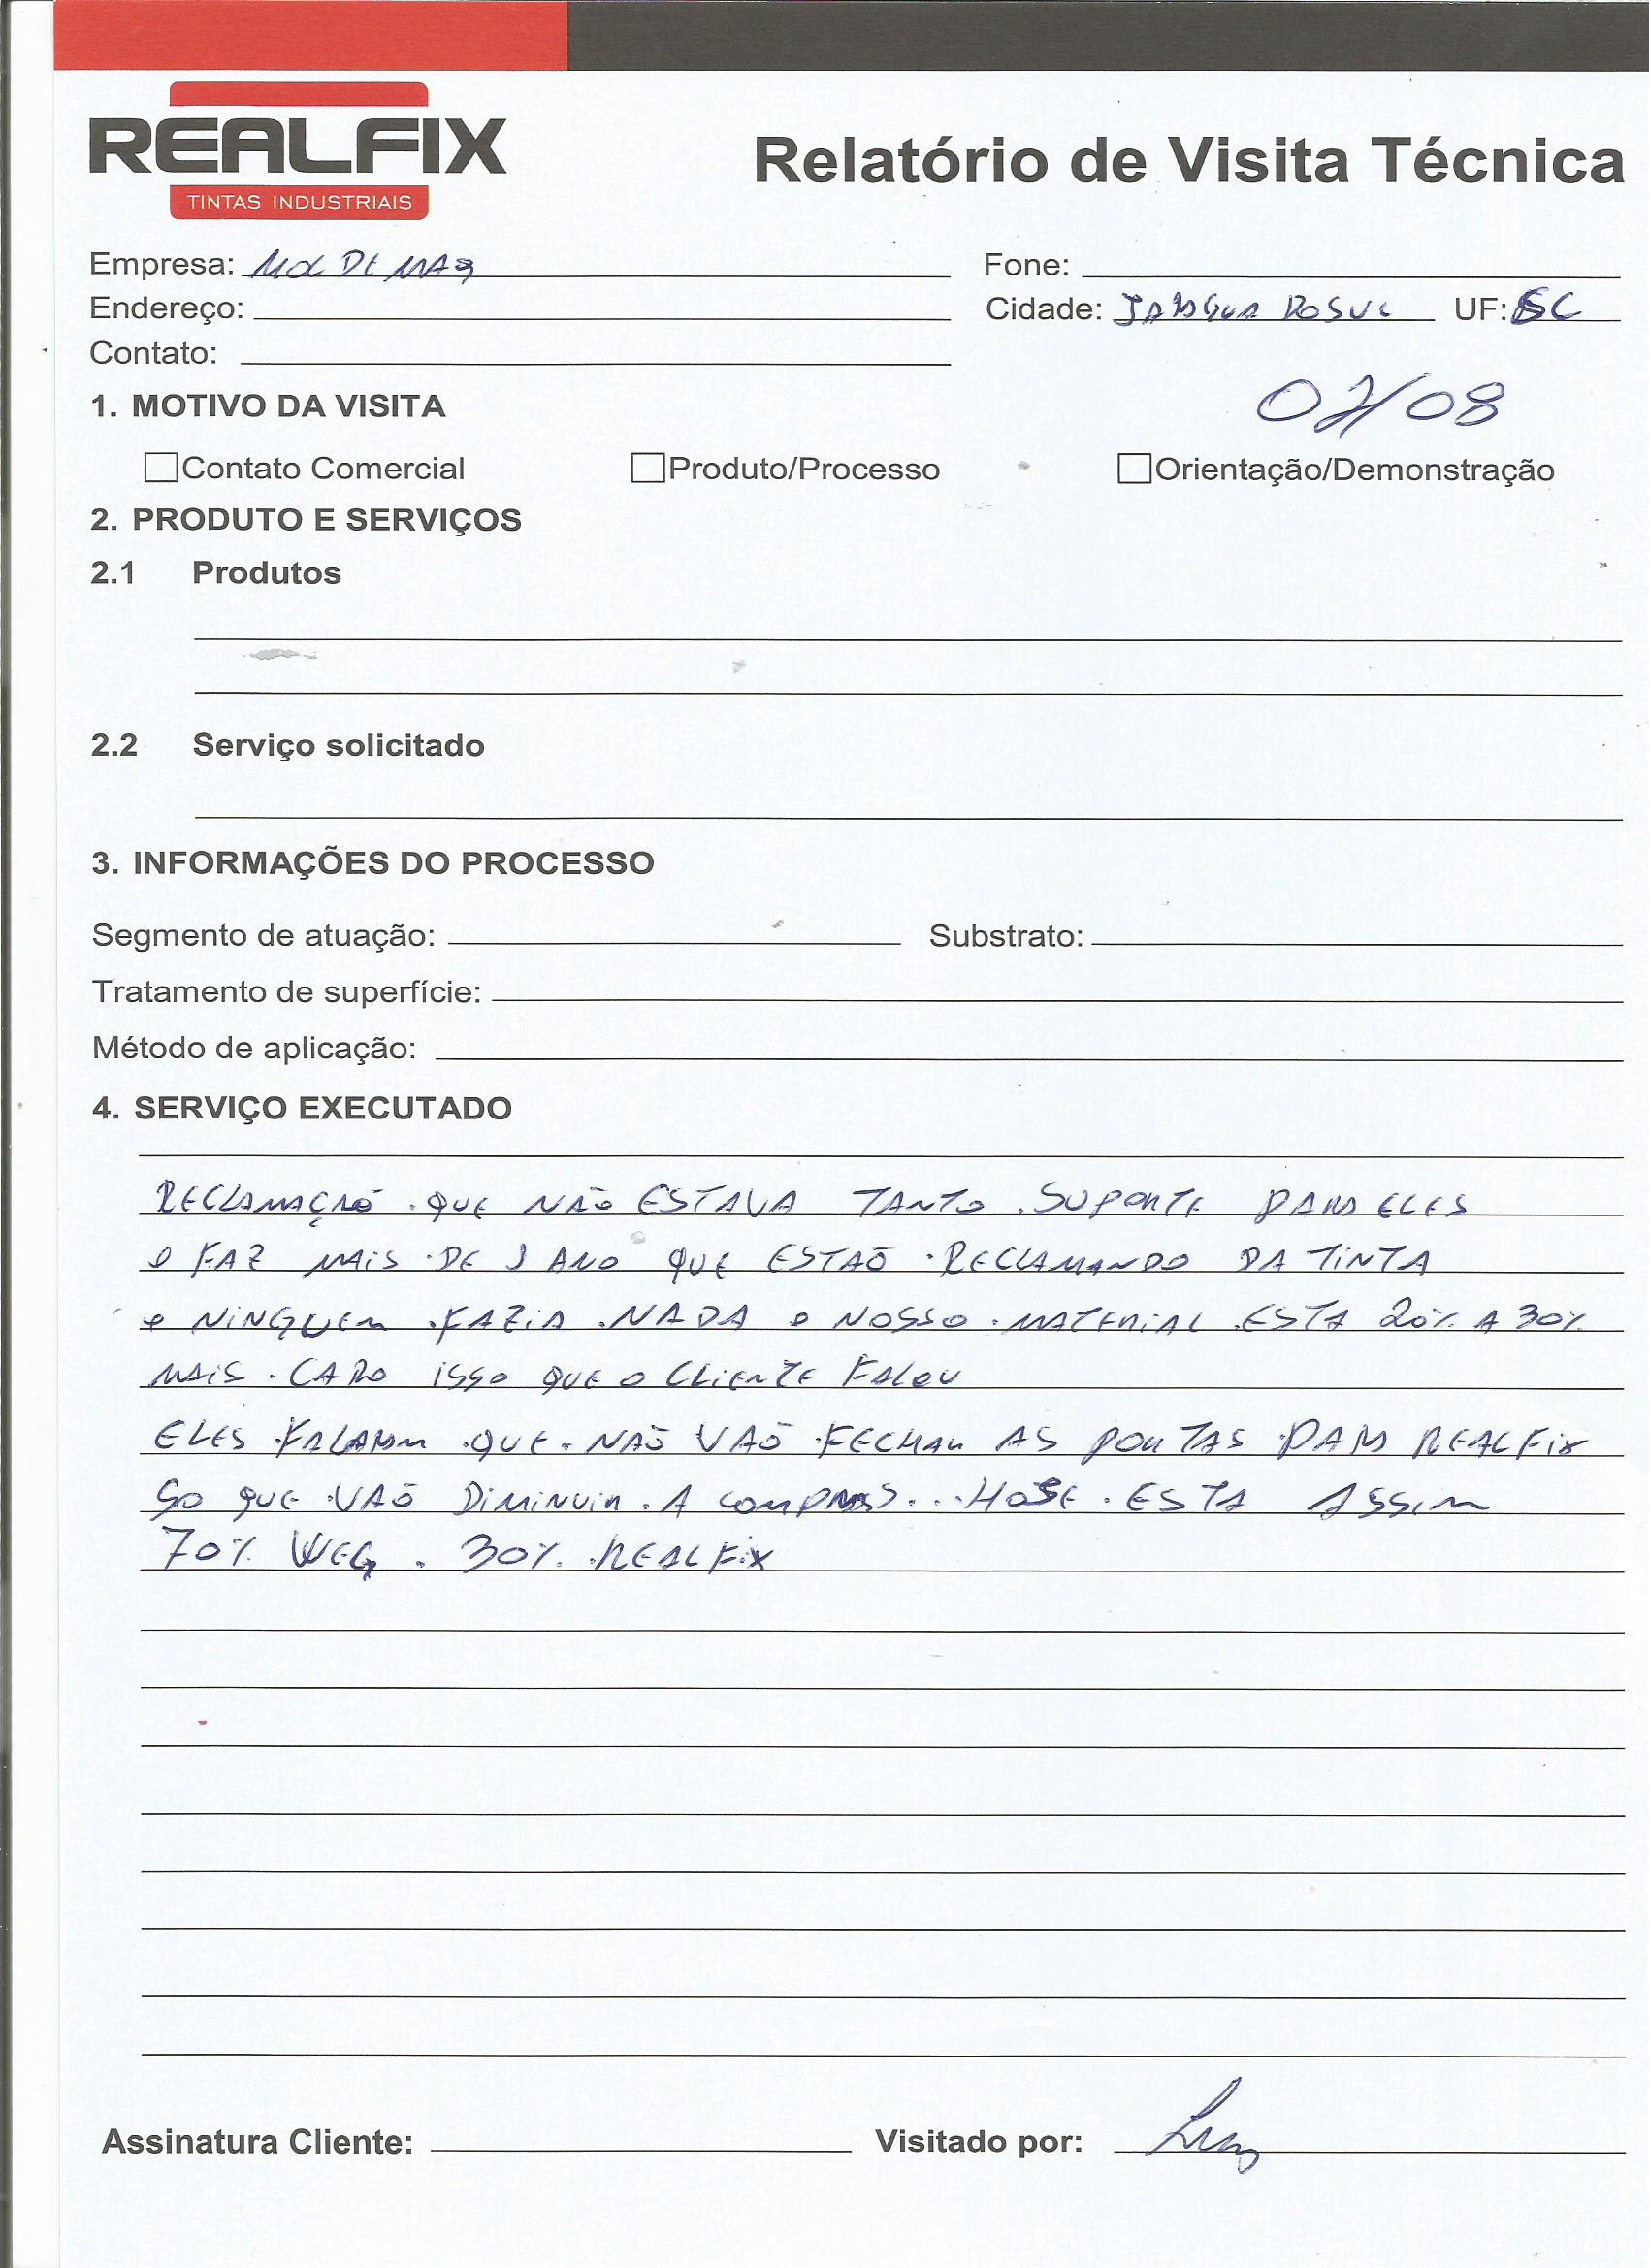 REALFIX
TINTAS INDUSTRIAIS
Relatório de Visita Técnica
Empresa: MOLDEMAQ
Fone:
Endereço:
Cidade: JARAGUA DO SUL UF: SC
Contato:
1. MOTIVO DA VISITA
07/08
Contato Comercial Produto/Processo Orientação/Demonstração
2. PRODUTO E SERVIÇOS
2.1 Produtos
2.2 Serviço solicitado
3. INFORMAÇÕES DO PROCESSO
Segmento de atuação: Substrato:
Tratamento de superfície:
Método de aplicação:
4. SERVIÇO EXECUTADO
RECLAMAÇÃO QUE NÃO ESTAVA TANTO SUPORTE PARA ELES
e FAZ MAIS DE 1 ANO QUE ESTAÕ RECLAMANDO DA TINTA
e NINGUEM FAZIA NADA e NOSSO MATERIAL ESTA 20% A 30%
MAIS CARO ISSO QUE O CLIENTE FALOU
ELES FALARAM QUE NAÕ VAÕ FECHAR AS PORTAS PARA REALFIX
SO QUE VAÕ DIMINUIR A COMPRAS... HOJE ESTA ASSIM
70% WEG . 30% REALFIX
Assinatura Cliente: Visitado por: